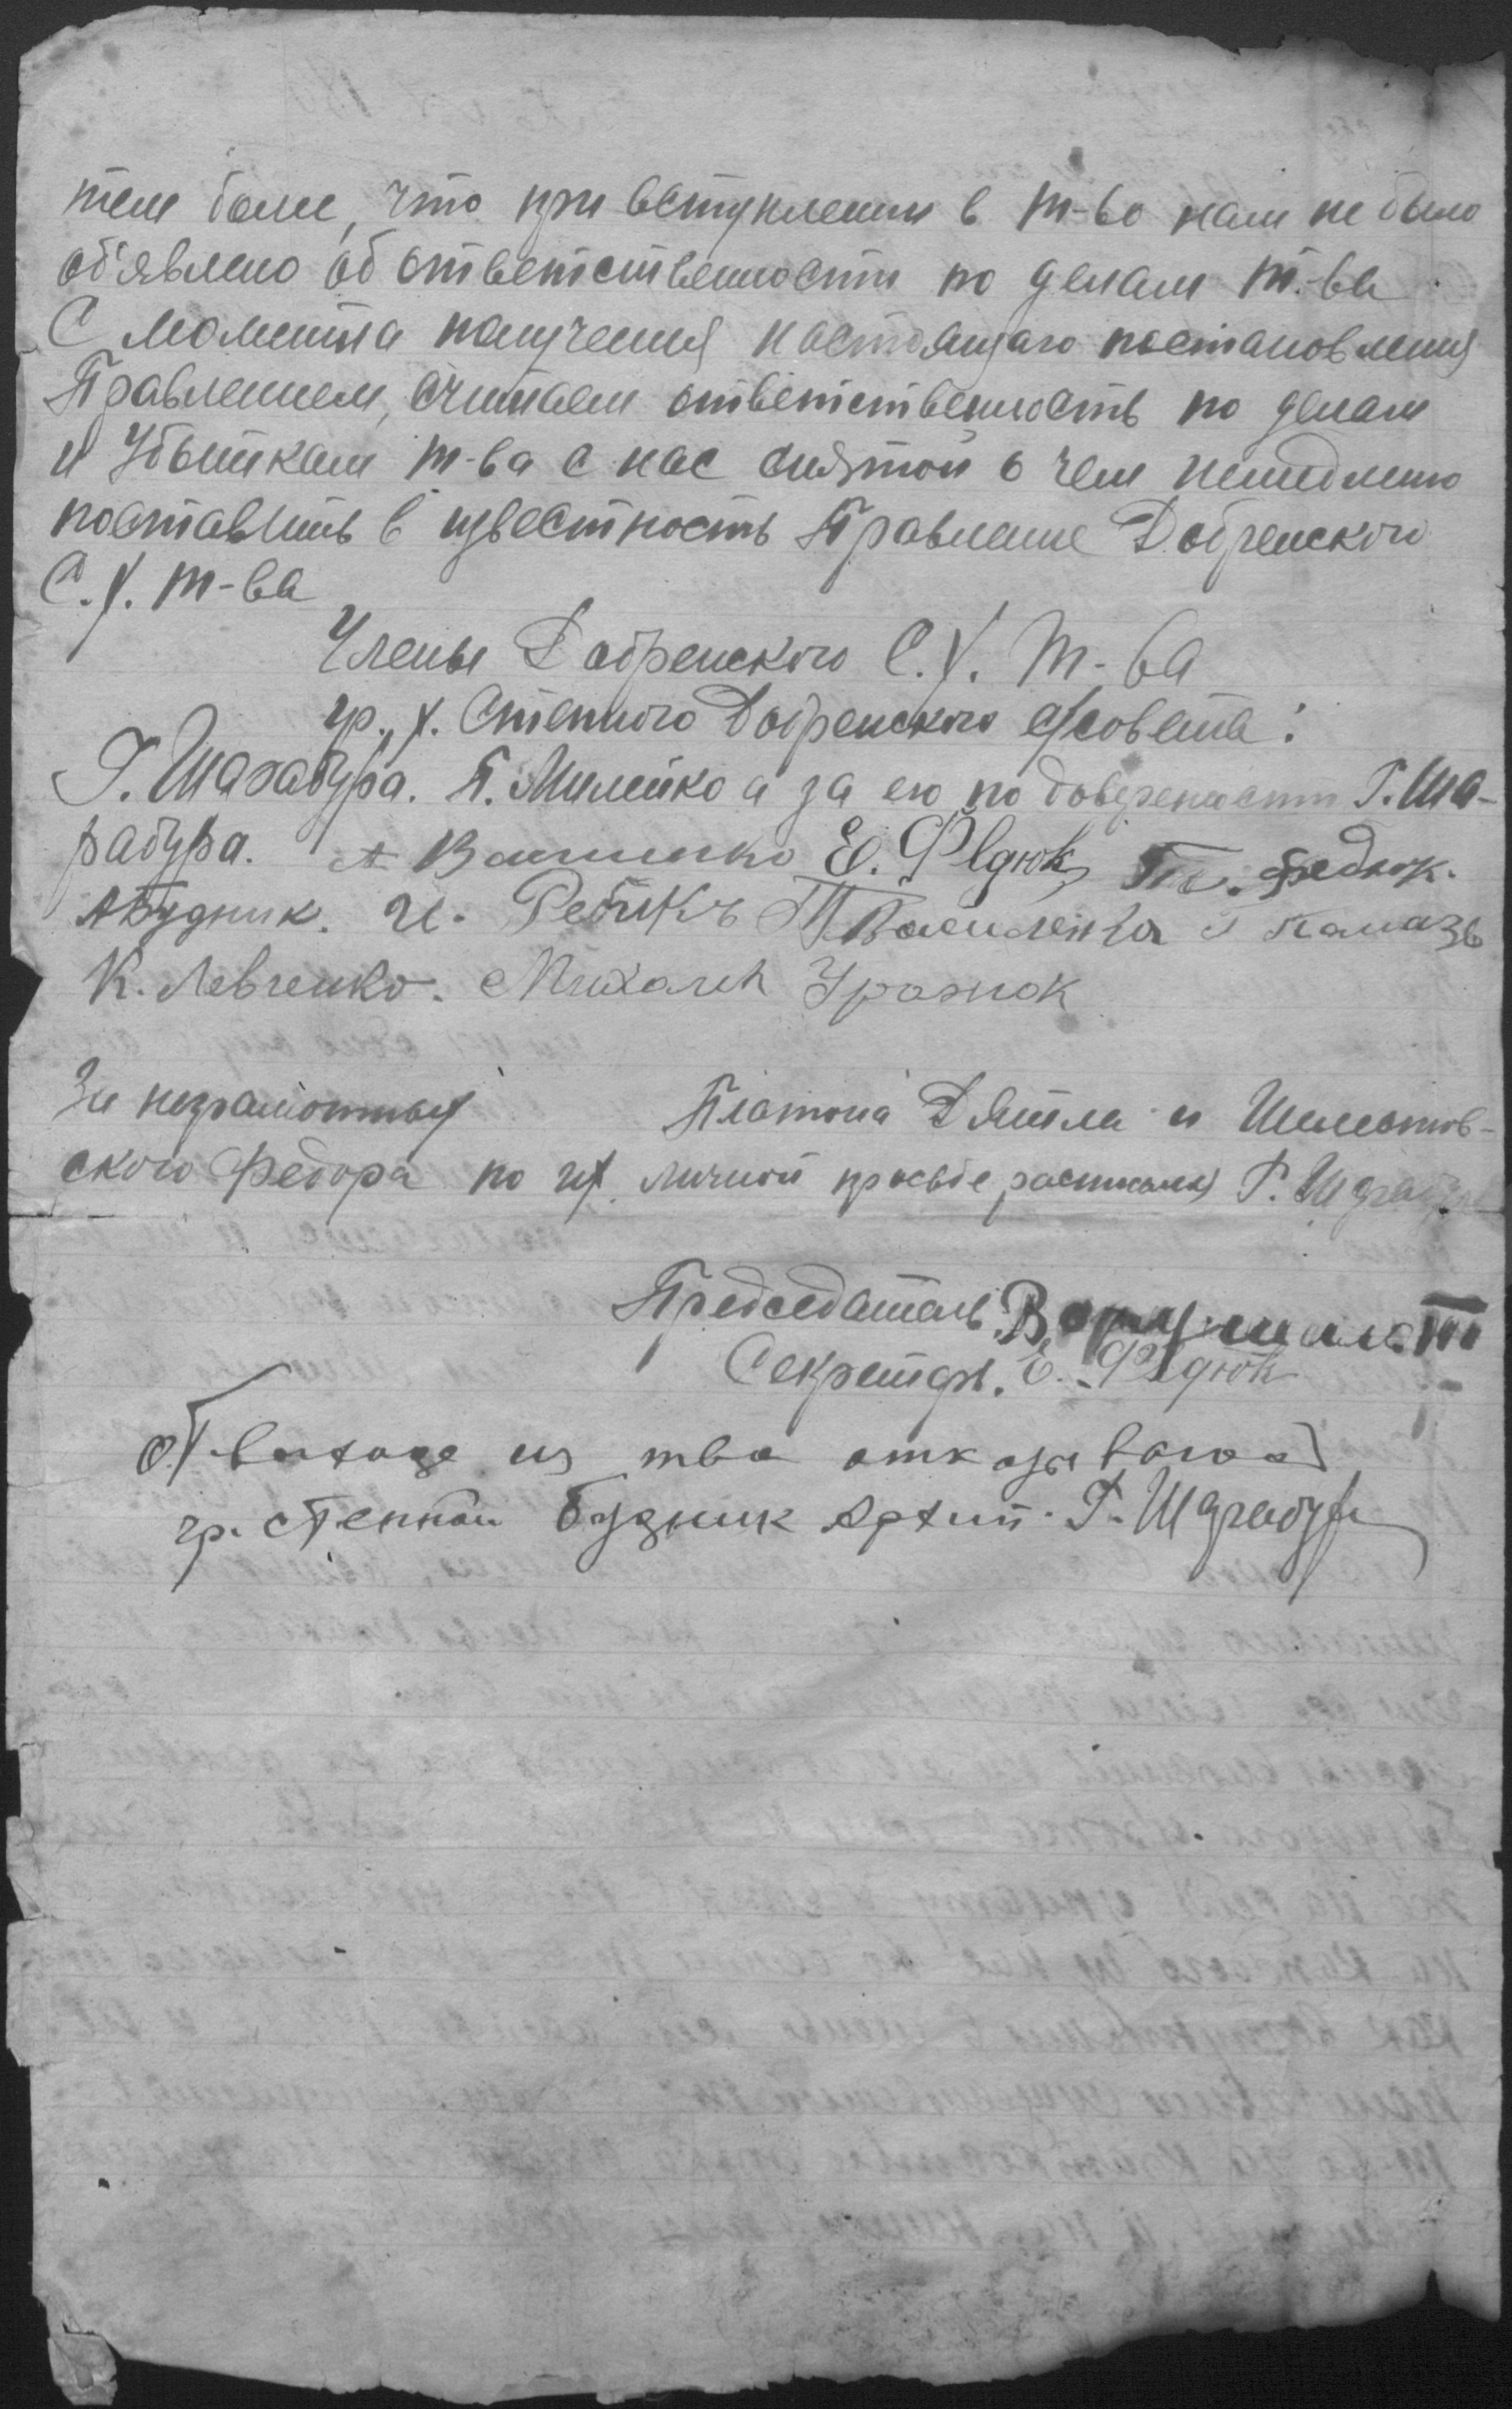 тем более, что при вступлении в т-во нам не было
об'явлено об ответственности по делам т-ва.
С момента получения настоящаго постановления
Правлением, считаем ответственность по делам
и убыткам т-ва с нас снятой о чем немедленно
поставить в известность Правление Добренского
С.Х. т-ва
Члены Добренского С.Х. т-ва
гр. х. Степного Добренского с/совета:
Г. Шарабура. П. Милейко а за его по доверенности Г. Ша-
рабура. А Василенко Е. Федюк Федюк.
А Будник. И. Василенко
К. Левченко. Михаил
За неграмотных Платона Дятла и
ского Федора по их личной просьбе расписался Г. Шарабура
Председатель
Секретарь. Е. Федюк
От выхода из тва отказываюсь
гр. Степной Будник Архип. Г. Шарабура